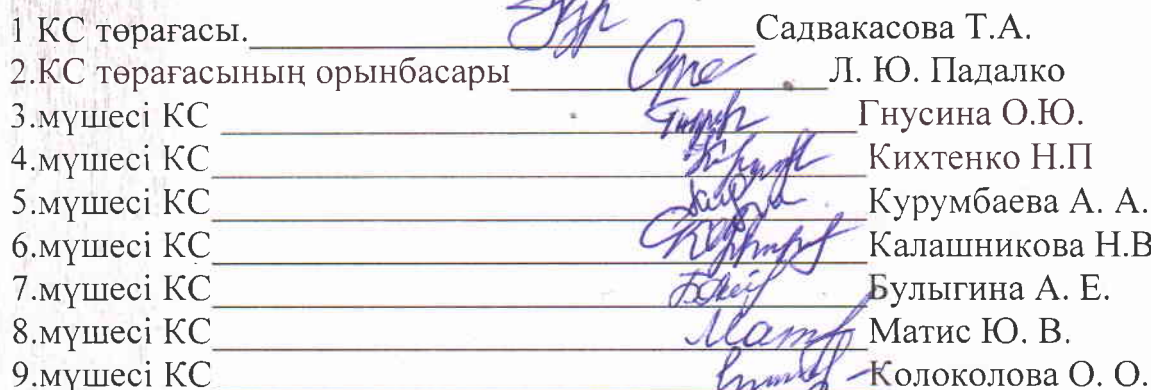 1 КС төрағасы. Садвакасова Т.А.
2.КС төрағасының орынбасары Л. Ю. Падалко
3.мүшесі КС Гнусина О.Ю.
4.мүшесі КС Кихтенко Н.П
5.мүшесі КС Курумбаева А. А.
6.мүшесі КС Калашникова Н.В
7.мүшесі КС Булыгина А. Е.
8.мүшесі КС Матис Ю. В.
9.мүшесі КС Колоколова О. О.